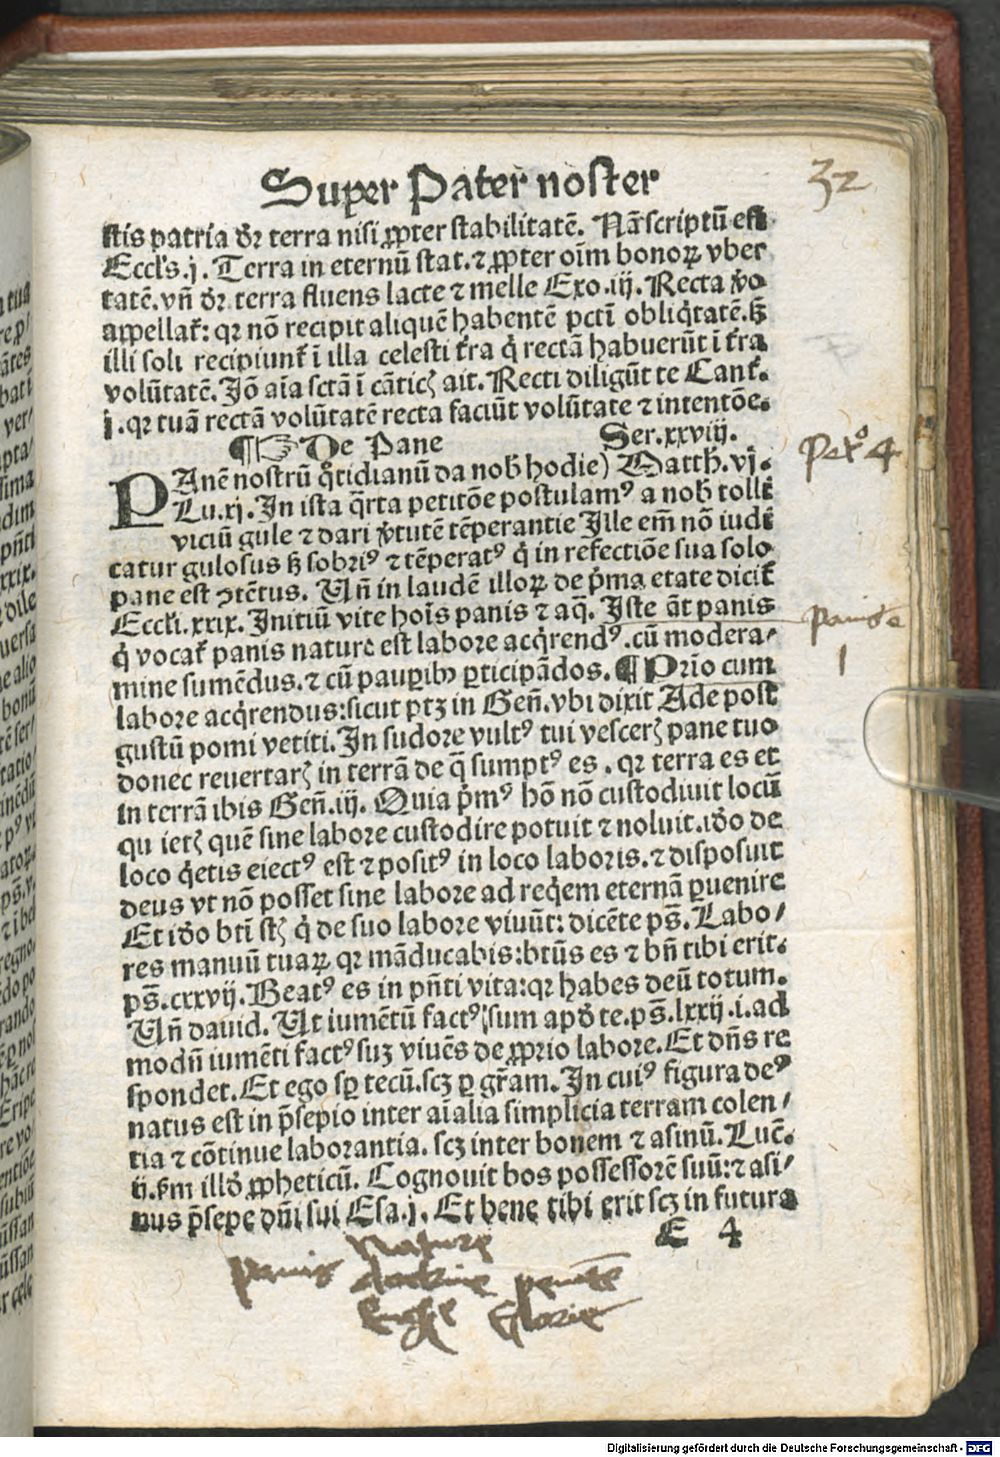 Super Pater noster
32
stis patria dr̄ terra nisi ꝓpter stabilitatē. Nā scriptū est
Eccls̄.j. Terra in eternū stat.⁊ ꝓpter oīm bonoꝝ vber
tatē.vn̄ dr̄ terra fluens lacte ⁊ melle Exo.iij. Recta v̊o
appellat̄: qꝛ nō recipit aliquē habentē pctī obliq̄tatē.sꝫ
illi soli recipiunt̄ ī illa celesti t̄ra q̇ rectā habuerūt ī t̄ra
volūtatē. Jō aīa sctā ī cātic̄ꝭ ait. Recti diligūt te Cant̄.
j.qꝛ tuā rectā volūtatē recta faciūt volūtate ⁊ intentōe.
¶☞ De Pane Ser.xxviij.
PAnē nostrū q̄tidianū da nob̄ hodie) Matth.vj.
Lu.xj. In ista q̄rta petitōe postulamꝰ a nob̄ tolli
viciū gule ⁊ dari v̊tutē tēperantie Jlle em̄ nō iudi
catur gulosus sꝫ sobriꝰ ⁊ tēperatꝰ q̇ in refectiōe sua solo
pane est ꝯtētus. Vn̄ in laudē illoꝝ de p̄ma etate dicit̄
Eccli.xxix. Initiū vite hoīs panis ⁊ aq̄. Iste āt panis
q̇ vocat̄ panis nature est labore acq̄rendꝰ.cū modera⸗
mine sumēdus.⁊ cū pauꝑibꝰ ꝑticipādos. ¶ Prīo cum
labore acq̄rendus:sicut ptꝫ in Gen̄.vbi dixit Ade post
gustū pomi vetiti. In sudore vultꝰ tui vescerꝭ pane tuo
donec revertarꝭ in terrā de q̄ sumptꝰ es. qꝛ terra es et
in terrā ibis Gen̄.iij. Quia p̄mꝰ hō nō custodiuit locū
qu ietꝭ quē sine labore custodire potuit ⁊ noluit.id̊o de
loco q̄etis eiectꝰ est ⁊ positꝰ in loco laboris.⁊ disposuit
deus vt nō posset sine labore ad req̄em eternā ꝑuenire
Et id̊o bt̄i st̄ꝭ q̇ de suo labore viuūt: dicēte ps̄. Labo⸗
res manuū tuaꝝ qꝛ māducabis:bt̄us es ⁊ bn̄ tibi erit.
ps̄.cxxvij. Beatꝰ es in pn̄ti vita:qꝛ habes deū totum.
Vn̄ dauid. Vt iumētū factꝰ sum apd̊ te.ps̄.lxxij.i.ad
modū iumēti factꝰ suꝫ viuēs de ꝓprio labore. Et dn̄s re
spondet. Et ego sꝑ tecū.scꝫ ꝑ gr̄am. In cuiꝰ figura deꝰ
natus est in p̄sepio inter aīalia simplicia terram colen⸗
tia ⁊ cōtinue laborantia. scꝫ inter bonem ⁊ asinū. Luc̄.
ij.km̄ illd̊ ꝓpheticū. Cognouit bos possessorē suū:⁊ asi⸗
nus p̄sepe dn̄i sui Esa.j. Et bene tibi erit scꝫ in futura
E 4
Petº 4
panis
1
Nature
panis doctrine penitē
Glorie
Digitalisierung gefördert durch die Deutsche Forschungsgemeinschaft - DFG